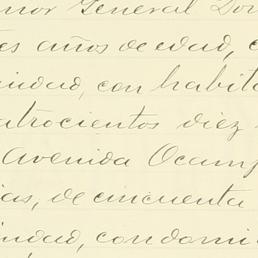 nor General Don
es años de edad, c
iudad, con habita
atrocientos diez
Avenida Ocamp
ias, de cincuenta
iudad, con domi